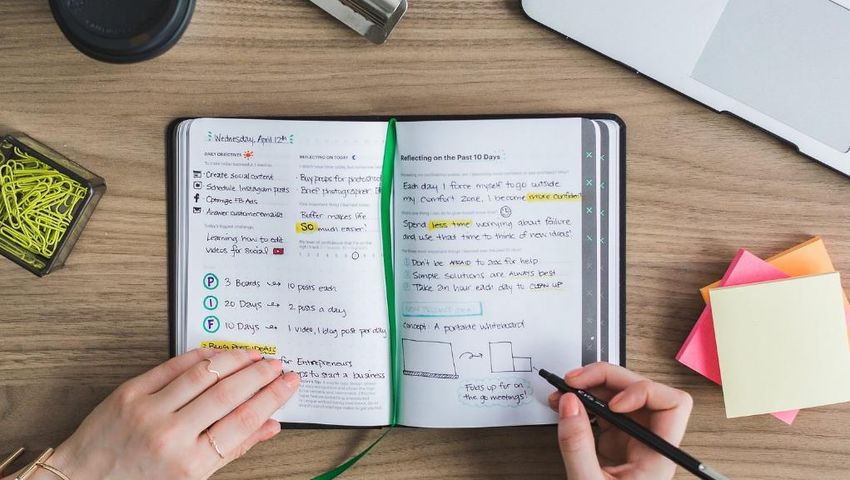 Wednesday, April 12th
DAILY OBJECTIVES
Create social content
Schedule Instagram posts
Optimize FB Ads
Answer customer emails
Today's biggest challenge
Learning how to edit
videos for social
P 3 Boards 10 posts each
I 20 Days 2 posts a day
F 10 Days 1 video, 1 blog post per day
2 Blog Post Ideas:
for Entrepreneurs
to start a business
REFLECTING ON TODAY
Buy props for photoshoot
Brief photographer
Buffer makes life
SO much easier!
Reflecting on the Past 10 Days
Each day I force myself to go outside
my comfort zone, I become more confident
Spend less time worrying about failure
and use that time to think of new ideas!
1 Don't be AFRAID to ask for help
2 Simple solutions are ALWAYS best
3 Take an hour each day to CLEAN UP
Concept: A portable whiteboard!
Folds up for on
the go meetings!